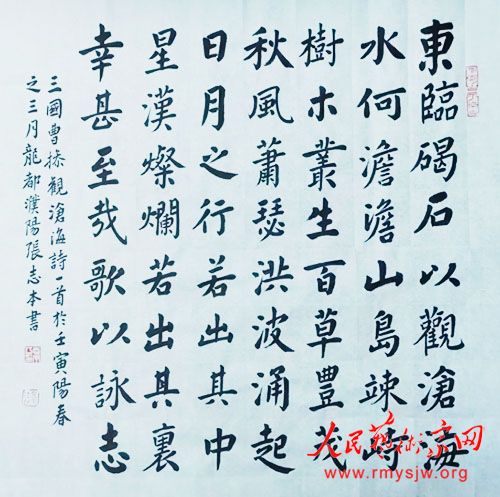 東臨碣石以觀滄海
水何澹澹山島竦峙
樹木叢生百草豐茂
秋風蕭瑟洪波涌起
日月之行若出其中
星漢燦爛若出其裏
幸甚至哉歌以詠志
三國曹操觀滄海詩一首於壬寅陽春
之三月龍都濮陽張志本書
人民藝術家网
www.rmysjw.org